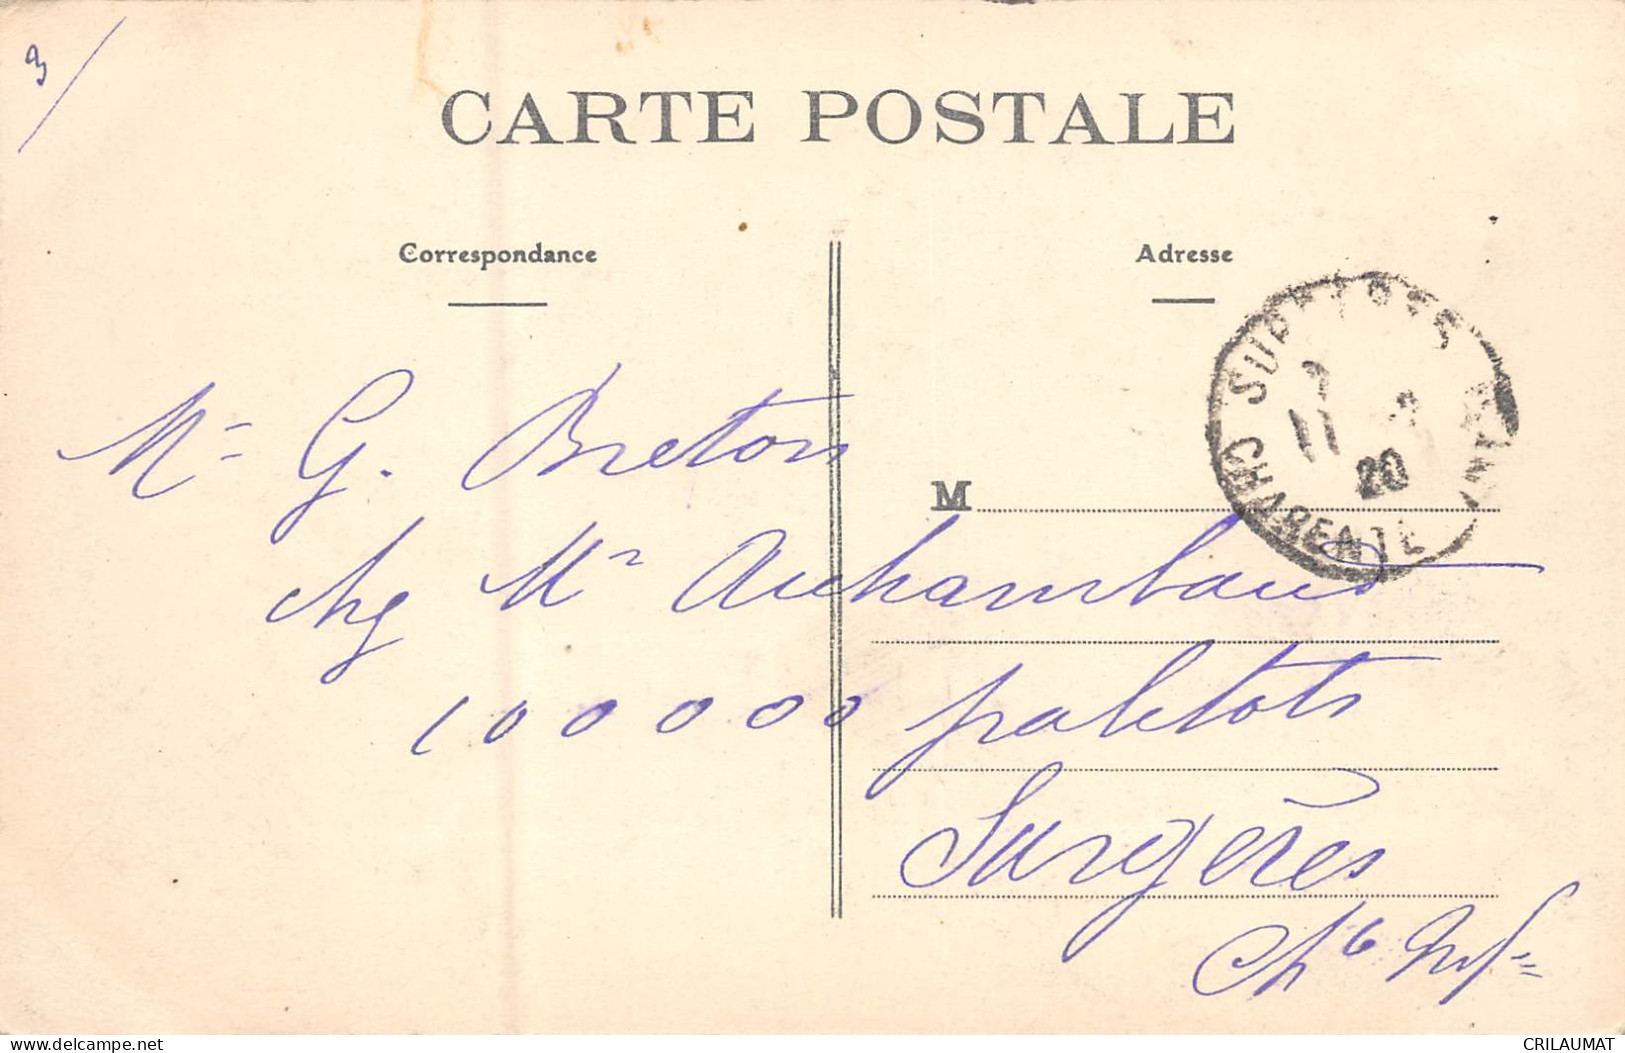 3
CARTE POSTALE
Correspondance
Adresse
SURGÈRES
11
20
CHARENTE
M
Mr G. Breton
chz Mr Auchambaud
100000 paletots
Surgères
Chte Infre
www.delcampe.net
CRILAUMAT